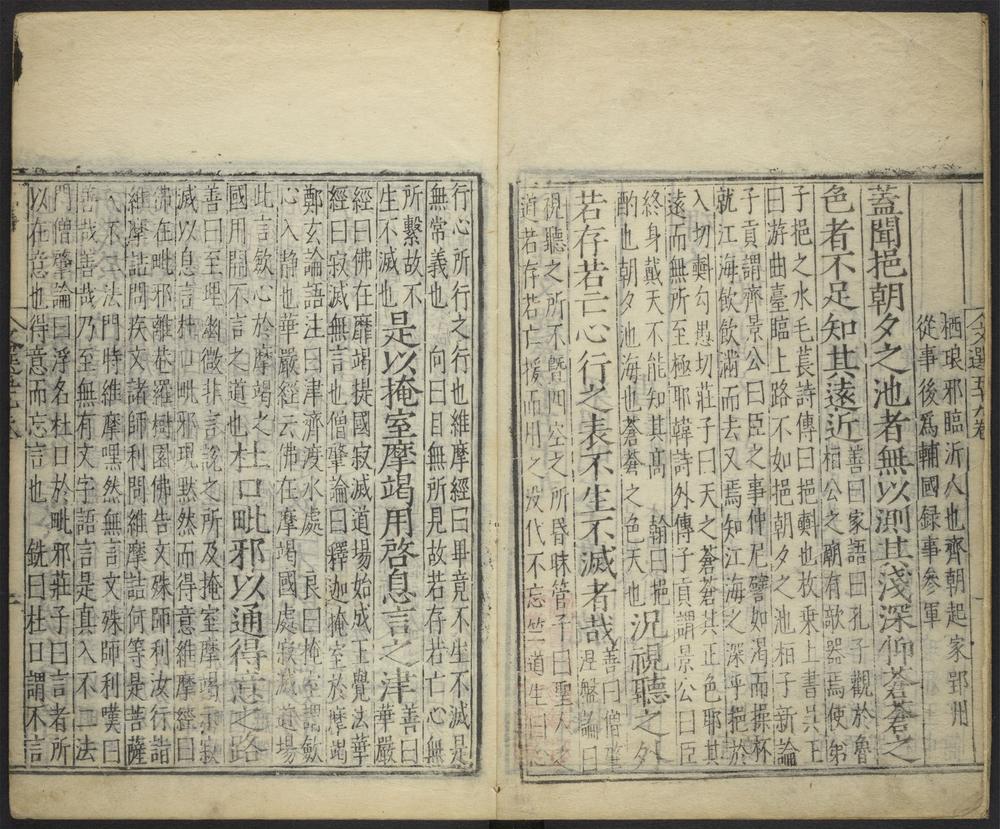 文選五十九卷
栖琅邪臨沂人也齊朝起家郢州
從事後爲輔國録事參軍
蓋聞挹朝夕之池者無以測其淺深仰蒼蒼之
色者不足知其遠近
善曰家語曰孔子觀於魯
桓公之廟有欹器焉使弟
子挹之水毛萇詩傳曰挹㪺也枚乘上書吳王
曰游曲臺臨上路不如挹朝夕之池桓子新論
子貢謂齊景公曰臣之事仲尼譬如渴而操杯
就江海飲飲滿而去又焉知江海之深乎挹於
入切㪺勾愚切莊子曰天之蒼蒼其正色耶其
遠而無所至極耶韓詩外傳子貢謂景公曰臣
終身戴天不能知其高 翰曰挹
酌也朝夕池海也蒼蒼之色天也
況視聽之外
若存若亡心行之表不生不滅者哉
善曰僧肇
涅槃論曰
視聽之所不曁四空之所昏昧管子曰聖人之
近若存若亡援而用之没代不忘竺道生曰心
行心所行之行也維摩經曰畢竟不生不滅是
無常義也 向曰目無所見故若存若亡心無
所繫故不
生不滅也
是以掩室摩竭用啓息言之津
善曰
華嚴
經曰佛在摩竭提國寂滅道場始成正覺法華
經曰寂滅無言也僧肇論曰釋迦掩室於摩竭
鄭玄論語注曰津濟渡水處 良曰掩室謂斂
心入静也華嚴經云佛在摩竭國處寂滅道場
此言歛心於摩竭之
國用開不言之道也
杜口毗邪以通得意之路
善曰至理幽微非言說之所及掩室摩竭示寂
滅以息言杜口毗邪現默然而得意維摩經曰
佛在毗邪離菴羅樹園佛告文殊師利汝行詣
維摩詰問疾文諸師利問維摩詰何等是菩薩
入不二法門時維摩嘿然無言文殊師利嘆曰
善哉善哉乃至無有文字語言是真入不二法
門僧肇論曰浮名杜口於毗邪莊子曰言者所
以在意也得意而忘言也 銑曰杜口謂不言